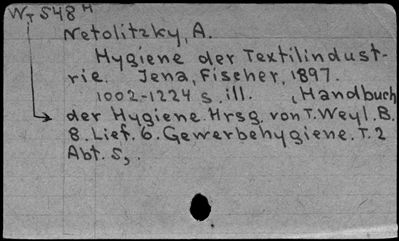 WT 548 H
Netolitzky, A.
Hygiene der Textilindust-
rie. Jena, Fischer, 1897.
1002-1224 s. ill. (Handbuch
der Hygiene. Hrsg. von T. Weyl. B.
8. Lief. 6. Gewerbehygiene. T. 2
Abt. 5,.